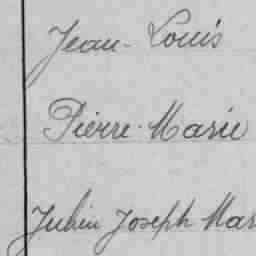 Jean-Louis
Pierre-Marie
Julien Joseph Mar